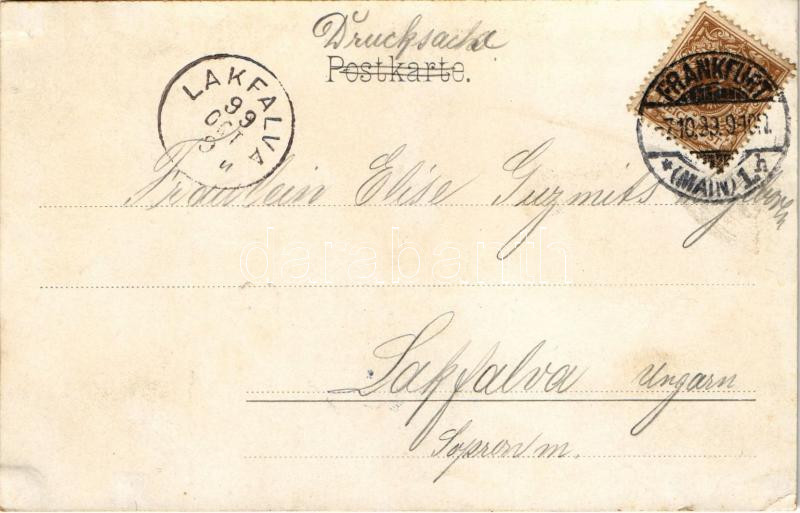 Drucksache
Postkarte.
LAKFALVA
99
OCT
9
FRANKFURT
10.99.9-10
*(MAIN)1.h
Fräulein Elise Guzmits
Lakfalva Ungarn
Sopron m.
darabanth